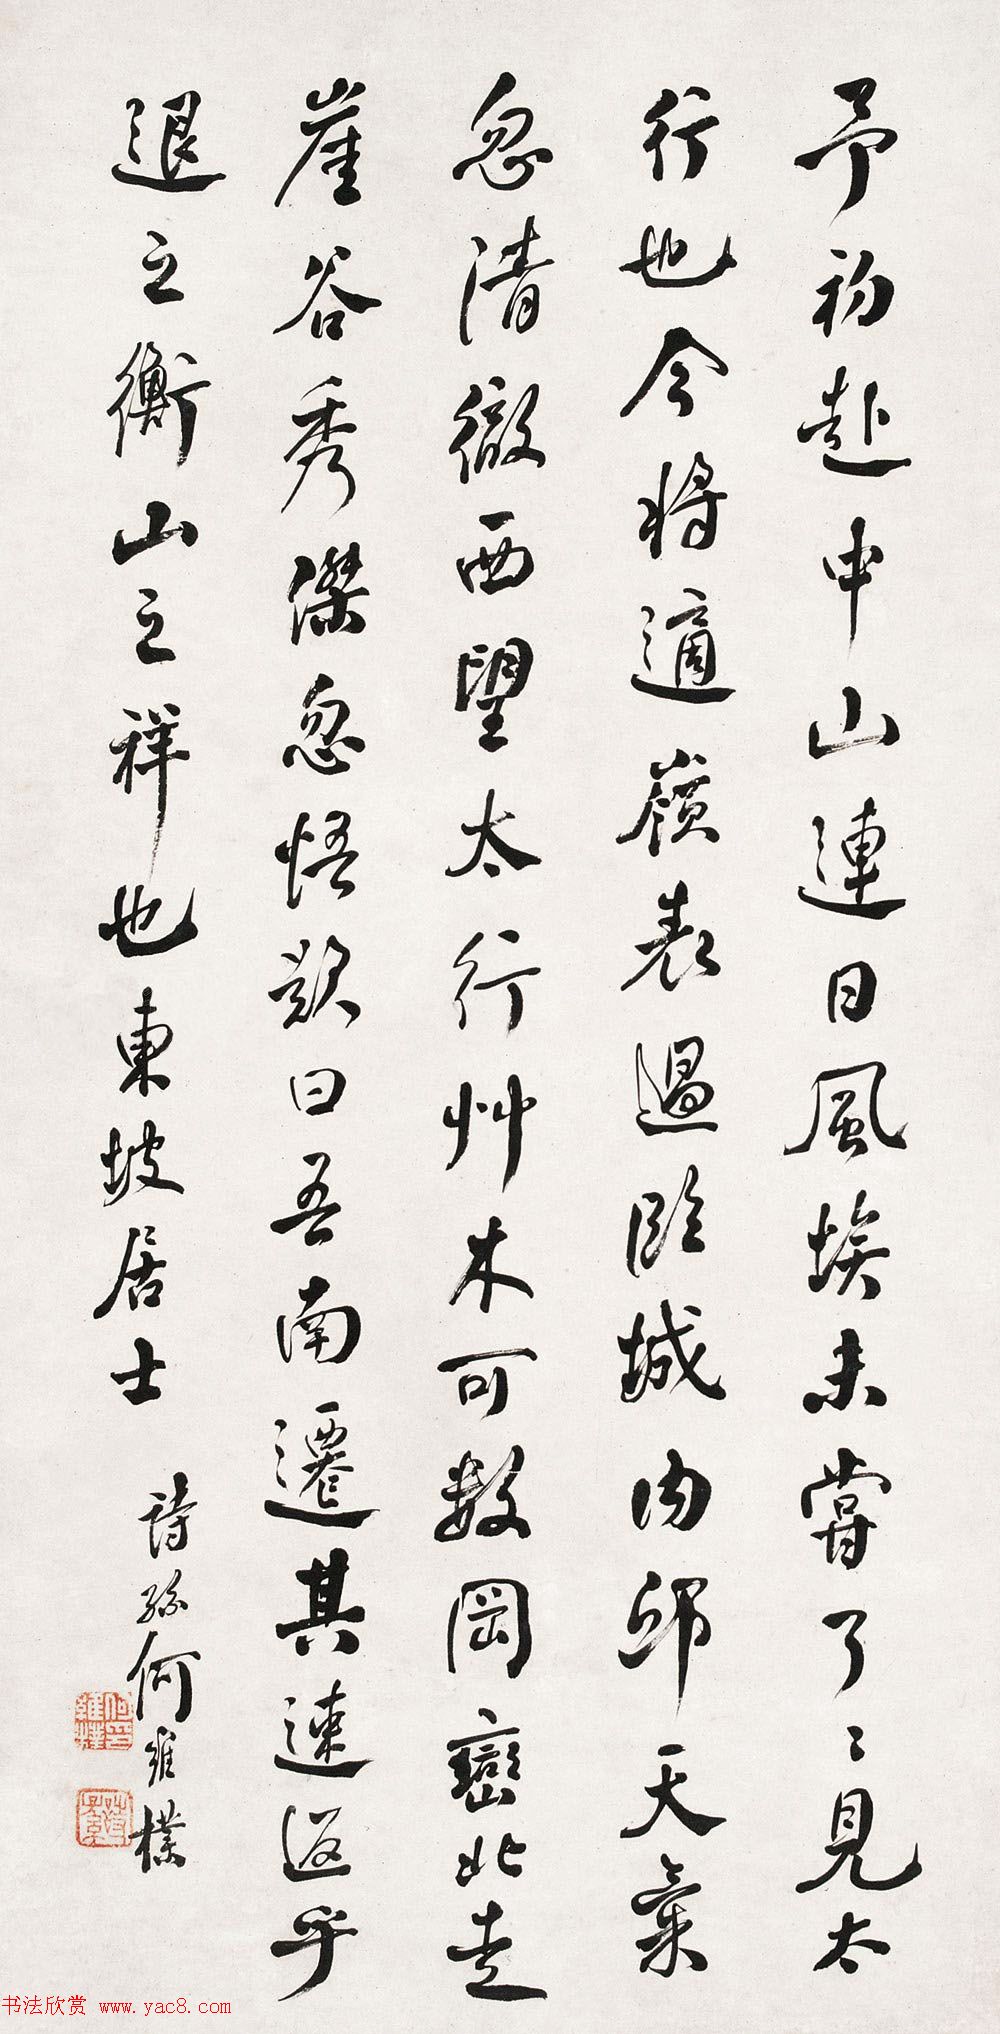 予初赴中山連日風埃未嘗了〻見太
行也今將適嶺表過臨城內邱天氣
忽清徹西望太行艸木可數岡巒北走
崖谷秀傑忽悟歎曰吾南遷其速返乎
退之衡山之祥也東坡居士
詩孫何維樸
何維樸印
詩孫
书法欣赏 www.yac8.com